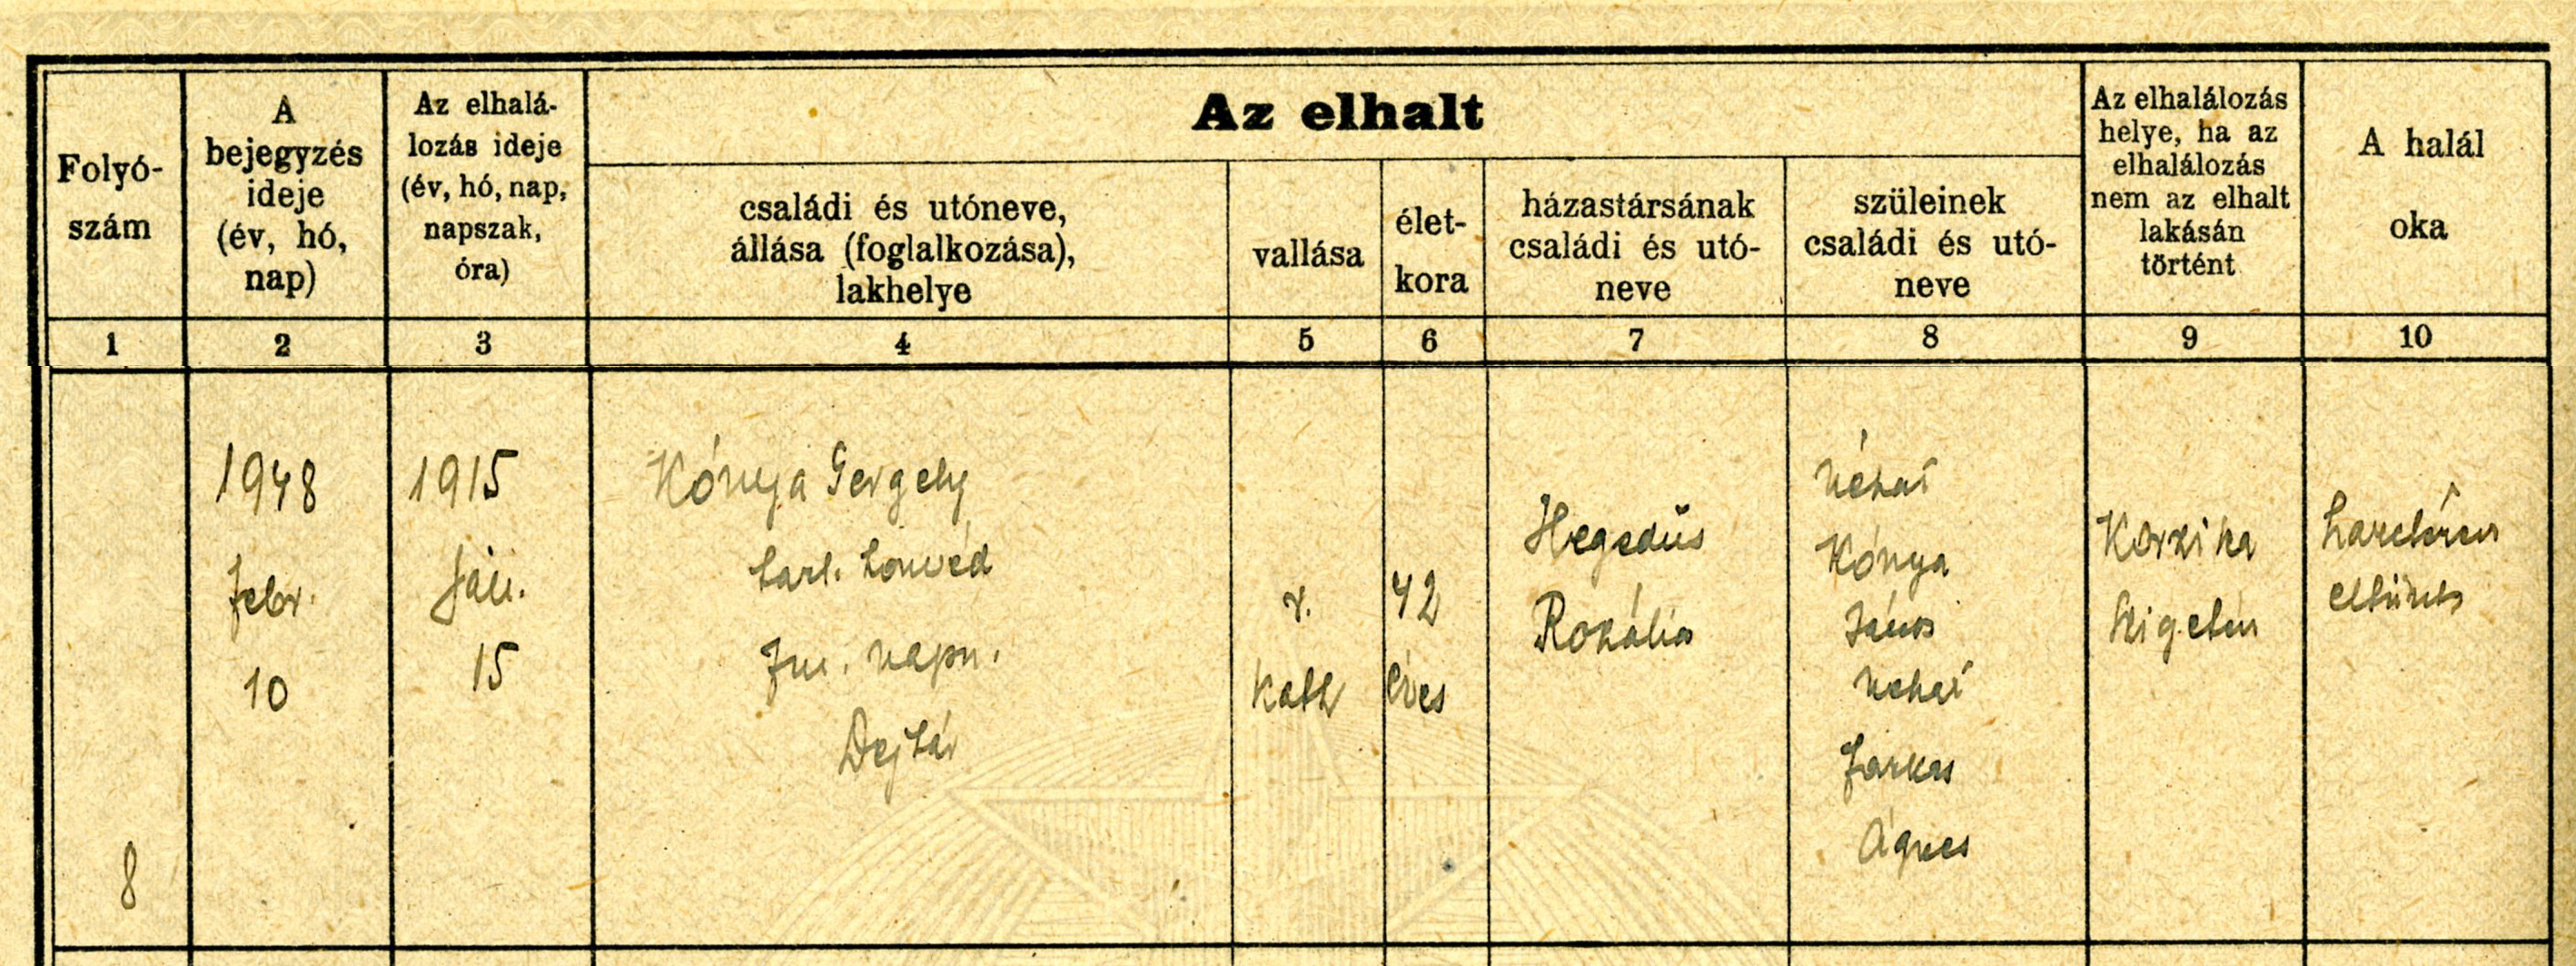 Az elhalt
Folyó-
szám
A
bejegyzés
ideje
(év, hó,
nap)
Az elhalá-
lozás ideje
(év, hó, nap,
napszak,
óra)
családi és utóneve,
állása (foglalkozása),
lakhelye
vallása
élet-
kora
házastársának
családi és utó-
neve
szüleinek
családi és utó-
neve
Az elhalálozás
helye, ha az
elhalálozás
nem az elhalt
lakásán
történt
A halál
oka
1
2
3
4
5
6
7
8
9
10
8
1948
febr.
10
1915
jan.
15
Kónya Gergely
honvéd
napsz.
Dejtár
r.
kath
42
éves
Hegedűs
Rozália
néhai
Kónya
János
néhai
Farkas
Ágnes
Korzika
szigetén
harctéren
eltűnt